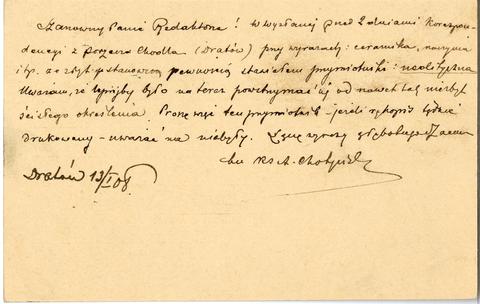 Szanowny Panie Redaktorze! W wysłanej przed 2 dniami korespon-
dencyi z Chodla (Dratów) przy wyrazach: ceramika, naczynia
itp. ze zbyt stanowczą pewnością stawiałem przymiotniki: neolityczna
Uważam, że lepiej by było na teraz powstrzymać się od nawet tak niezbyt
ścisłego określenia. Proszę więc ten przymiotnik - jeżeli rękopis będzie
drukowany - uważać na niebyły. Łączę wyrazy głębokiego Szacun
ku Ks A.
Dratów 13/I 08